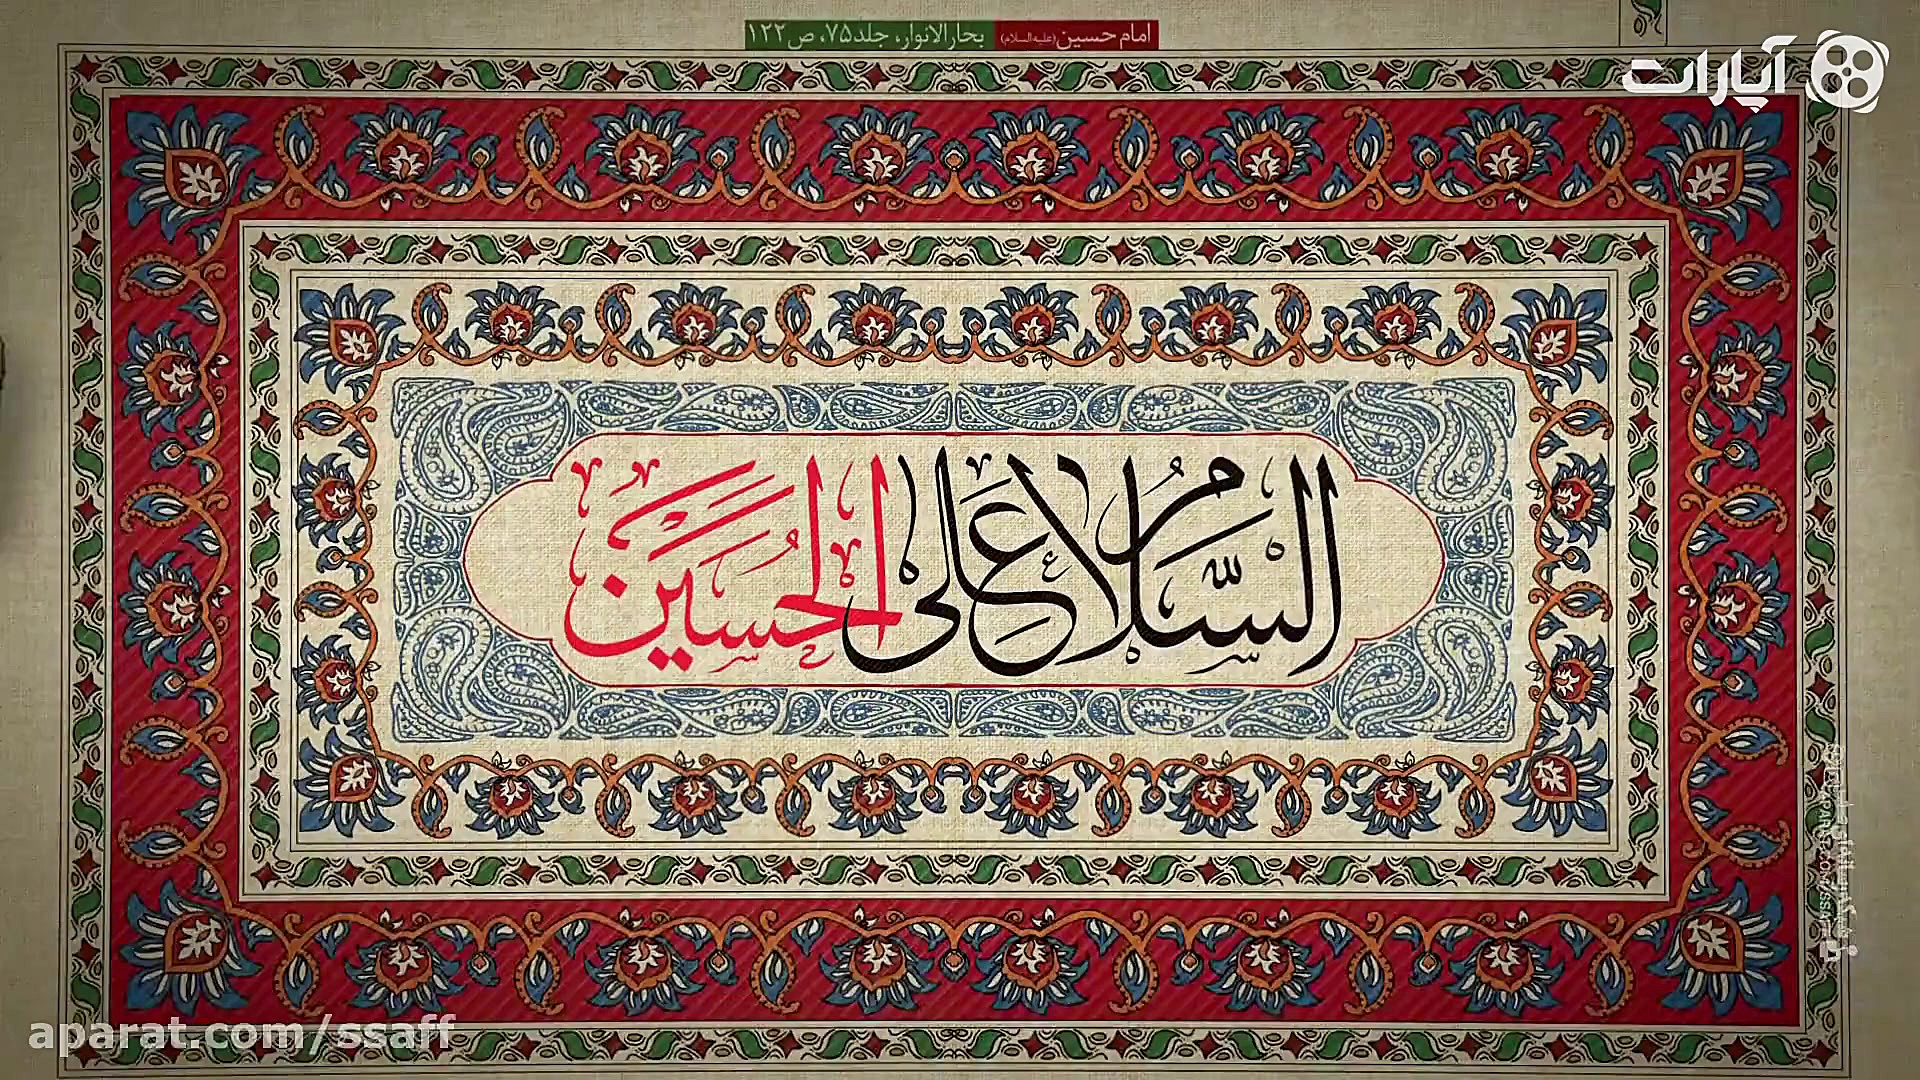 امام حسین (علیه‌السلام) بحارالانوار، جلد۷۵، ص۱۲۲
آپارات
السَّلامُ عَلَی الحُسَین
aparat.com/ssaff